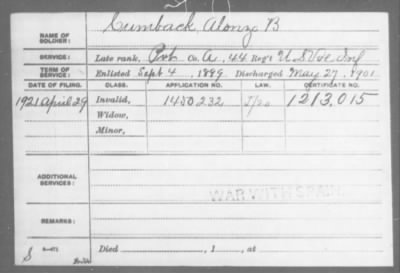 NAME OF SOLDIER: Cumback, Alonzo B
SERVICE: Late rank, Pvt Co. A, 44 Reg't U.S. Vol. Inf
TERM OF SERVICE: Enlisted Sept 4, 1899, Discharged May 27, 1901
DATE OF FILING. CLASS. APPLICATION NO. LAW. CERTIFICATE NO.
1921 April 29 Invalid, 1450232 1213,015
Widow,
Minor,
ADDITIONAL SERVICES:
WAR WITH SPAIN
REMARKS:
S Died , 1 , at